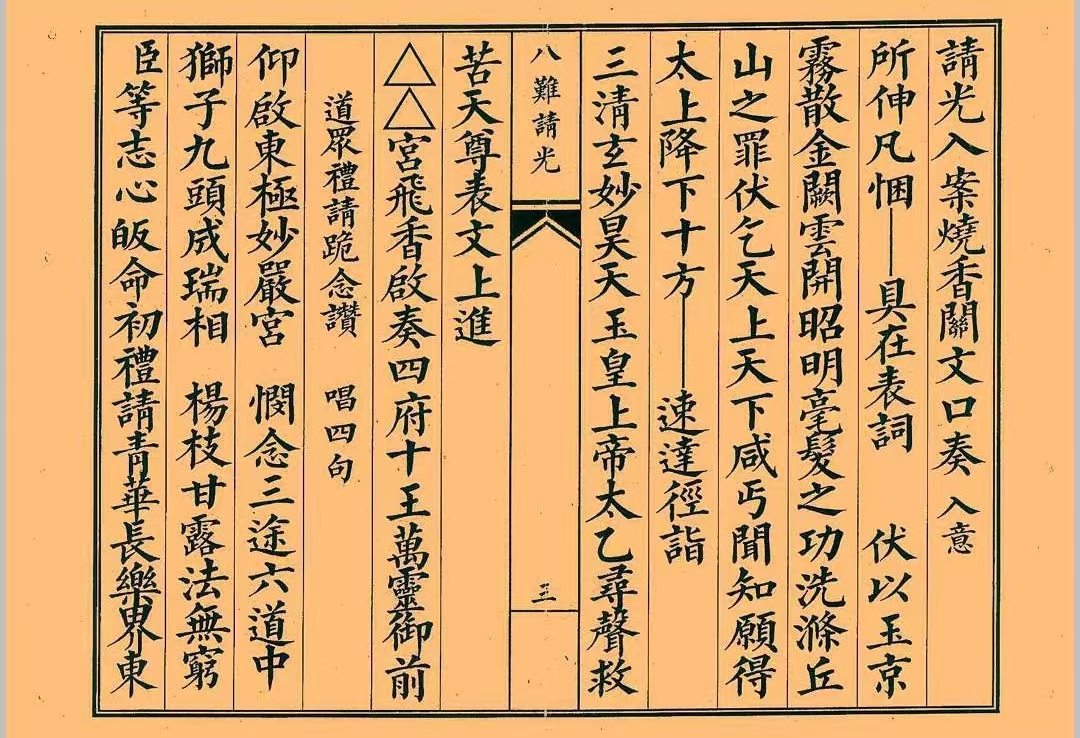 請光入案燒香關文口奏 入意
所伸凡悃——具在表詞 伏以玉京
霧散金闕雲開昭明毫髮之功洗滌丘
山之罪伏乞天上天下咸丐聞知願得
太上降下十方——速達徑詣
三清玄妙昊天玉皇上帝太乙尋聲救
八難請光
三
苦天尊表文上進
△△宮飛香啟奏四府十王萬靈御前
道眾禮請跪念讚 唱四句
仰啟東極妙嚴宮 憫念三途六道中
獅子九頭成瑞相 楊枝甘露法無窮
臣等志心皈命初禮請青華長樂界東